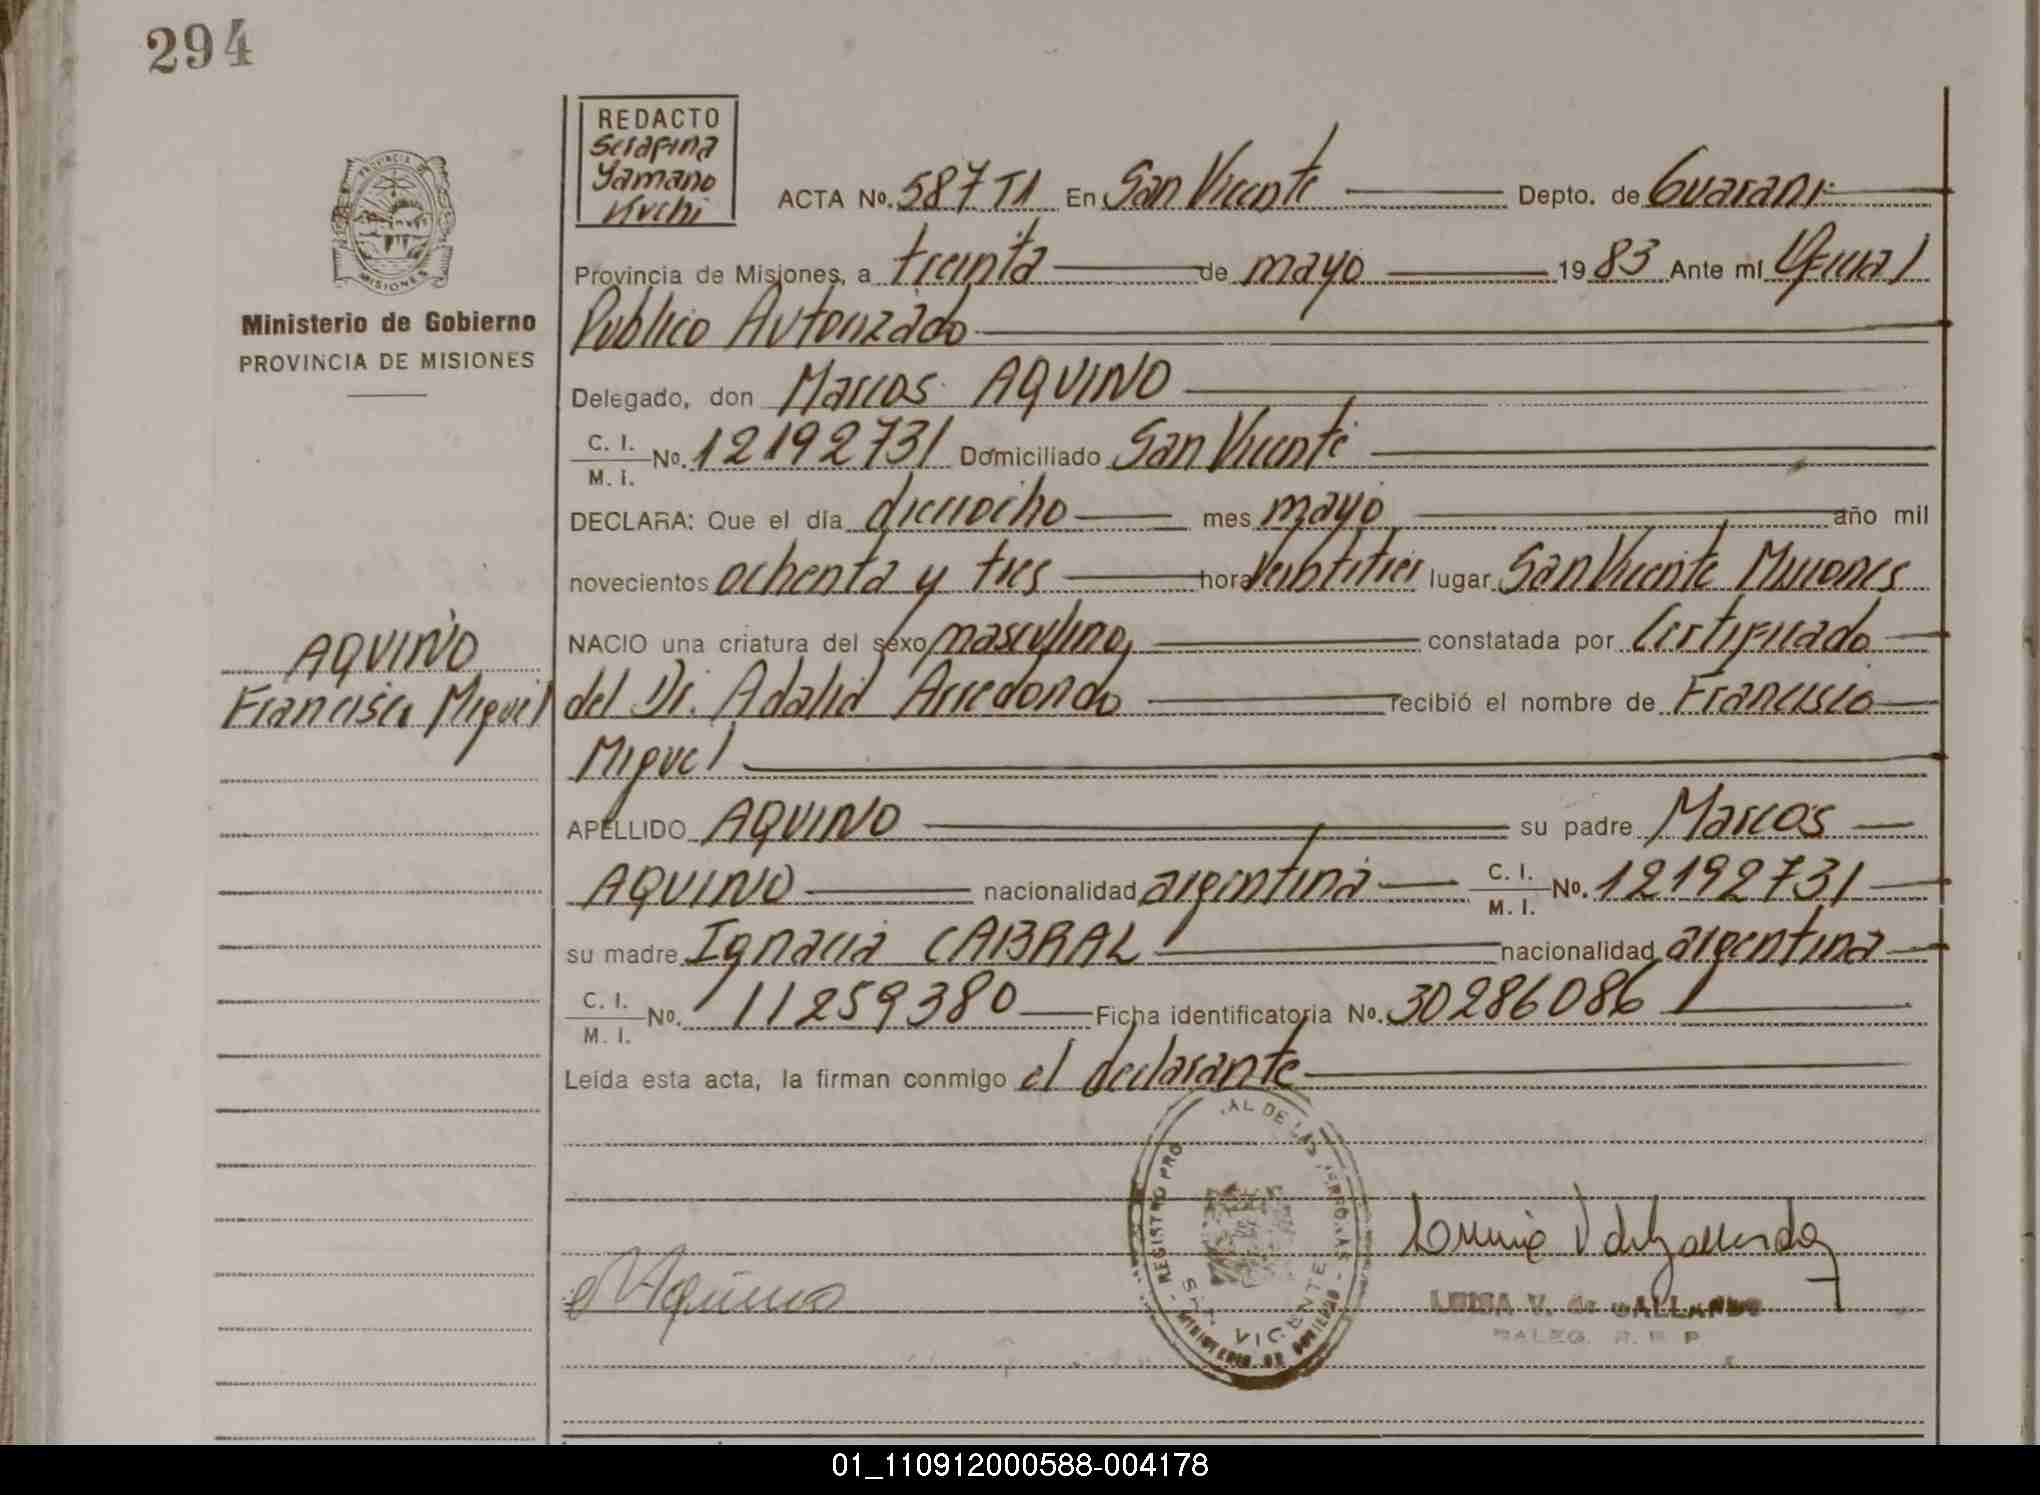 294
REDACTO
Serafina
Yamano
Kuchi
PROVINCIA DE
MISIONES
Ministerio de Gobierno
PROVINCIA DE MISIONES
ACTA No. 587 T1 En San Vicente Depto. de Guarani
Provincia de Misiones, a treinta de mayo 1983 Ante mí Oficial
Publico Autorizado
Delegado, don Marcos AQUINO
C. I.
M. I. No. 12192731 Domiciliado San Vicente
DECLARA: Que el día dieciocho mes mayo año mil
novecientos ochenta y tres hora veintitres lugar San Vicente Misiones
NACIO una criatura del sexo masculino, constatada por Certificado
del Dr. Adalid Arredondo recibió el nombre de Francisco
Miguel
AQUINO
Francisco Miguel
APELLIDO AQUINO su padre Marcos
AQUINO nacionalidad argentina C. I.
M. I. No. 12192731
su madre Ignacia CABRAL nacionalidad argentina
C. I.
M. I. No. 11259380 Ficha identificatoria No. 30286086
Leída esta acta, la firman conmigo el declarante
REGISTRO PRO AL DE LAS
SAN VICENTE
MINISTERIO DE GOBIERNO
Aquino
LUISA V. de GALLARDO
01_110912000588-004178